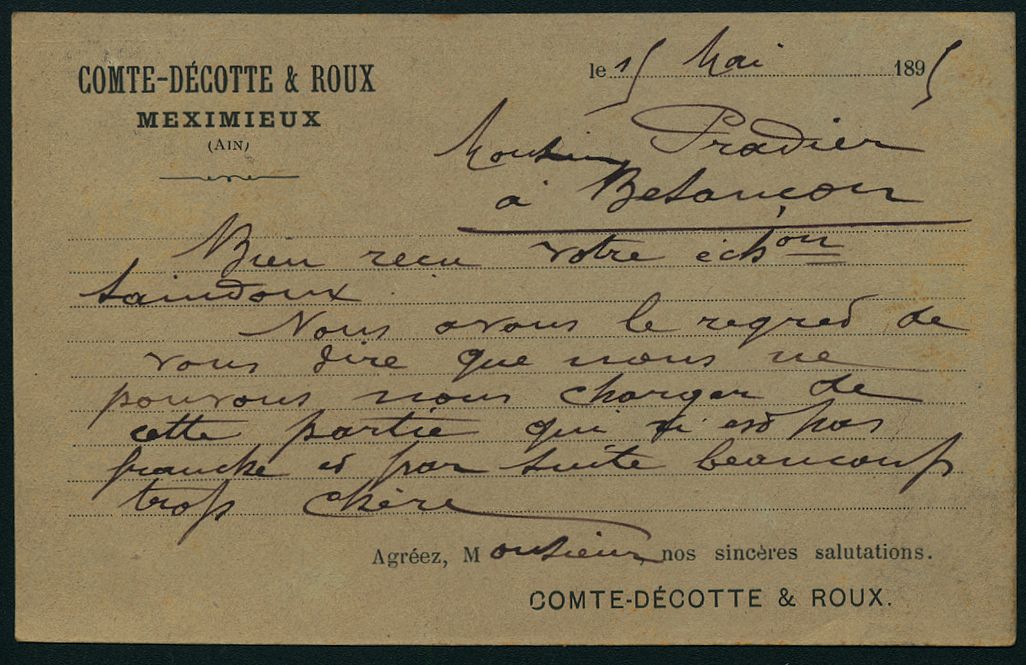 COMTE-DÉCOTTE & ROUX
MEXIMIEUX
(AIN)
le 15 Mai 1895
Monsieur Pradier
à Besançon
Bien reçu votre échon
saindoux.
Nous avons le regret de
vous dire que nous ne
pouvons nous charger de
cette partie qui n'est pas
franche et par suite beaucoup
trop chère
Agréez, Monsieur, nos sincères salutations.
COMTE-DÉCOTTE & ROUX.